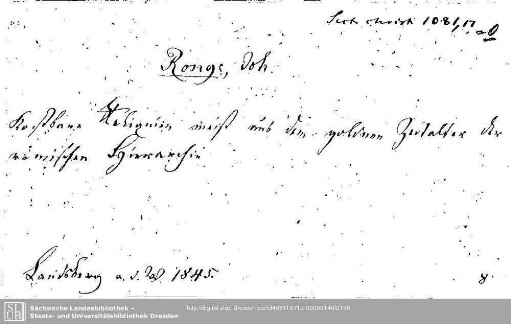 Secto christ 1081,17
Ronge, Joh.
Kostbare Reliquien meist aus dem goldnen Zeitalter der
römischen Hierarchie
Landsberg a. d. W. 1845.
8.
SLUB
Sächsische Landesbibliothek –
Staats- und Universitätsbibliothek Dresden